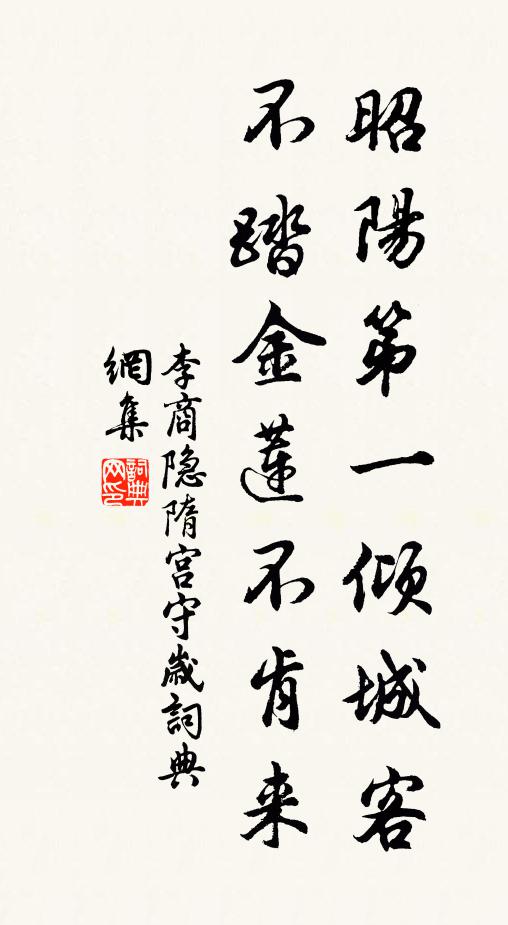 昭陽第一傾城客
不踏金蓮不肯来
李商隐隋宫守歲詞典
網集
詞典
网印